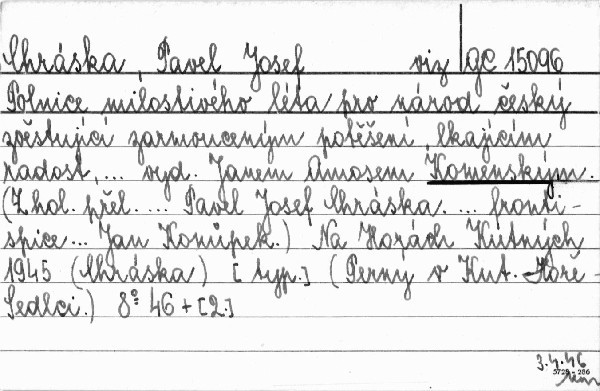 Chráska, Pavel Josef viz GC 15096
Polnice milostivého léta pro národ český
zvěstující zarmouceným potěšení, lkajícím
radost, ... vyd. Janem Amosem Komenským.
(Z hol. přel. ... Pavel Josef Chráska. ... fronti-
spice... Jan Konůpek.) Na Horách Kutných
1945 (Chráska) [typ.] (Perny v Kut. Hoře-
Sedlci.) 8° 46 + [2.]
3.4.46
5729 - 286